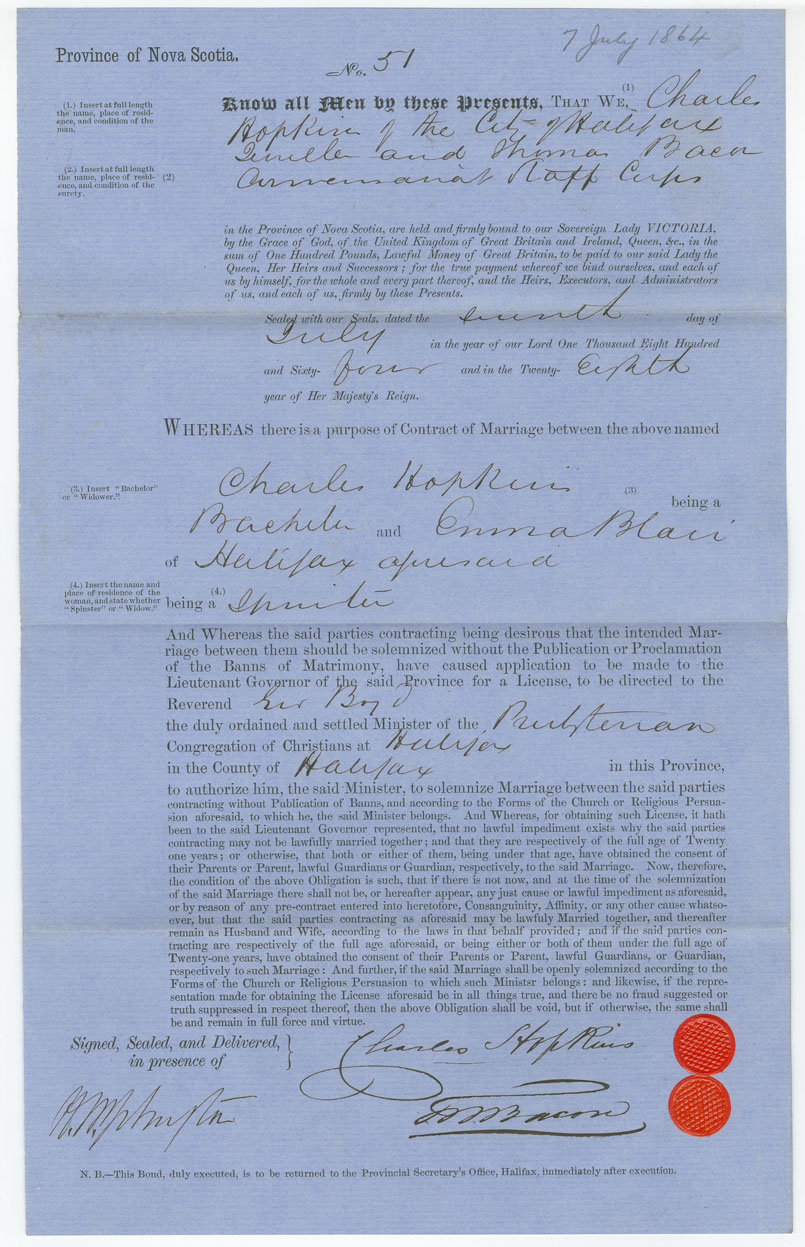 7 July 1864
Province of Nova Scotia.
No. 51
(1.) Insert at full length
the name, place of resid-
ence, and condition of the
man.
Know all Men by these Presents, THAT WE, (1) Charles
Hopkins of the City of Halifax
and Thomas Bacon
(2.) Insert at full length
the name, place of resid-
ence, and condition of the
surety.
(2)
Commissariat Staff Corps
in the Province of Nova Scotia, are held and firmly bound to our Sovereign Lady VICTORIA,
by the Grace of God, of the United Kingdom of Great Britain and Ireland, Queen, &c., in the
sum of One Hundred Pounds, Lawful Money of Great Britain, to be paid to our said Lady the
Queen, Her Heirs and Successors; for the true payment whereof we bind ourselves, and each of
us by himself, for the whole and every part thereof, and the Heirs, Executors, and Administrators
of us, and each of us, firmly by these Presents.
Sealed with our Seals, dated the seventh day of
July in the year of our Lord One Thousand Eight Hundred
and Sixty- four and in the Twenty- Eighth
year of Her Majesty's Reign.
WHEREAS there is a purpose of Contract of Marriage between the above named
(3.) Insert "Bachelor"
or "Widower."
Charles Hopkins (3) being a
Bachelor and Emma Blair
of Halifax aforesaid
(4.) Insert the name and
place of residence of the
woman, and state whether
"Spinster" or "Widow."
being a (4.) Spinster
And Whereas the said parties contracting being desirous that the intended Mar-
riage between them should be solemnized without the Publication or Proclamation
of the Banns of Matrimony, have caused application to be made to the
Lieutenant Governor of the said Province for a License, to be directed to the
Reverend Geo Boyd
the duly ordained and settled Minister of the Presbyterian
Congregation of Christians at Halifax
in the County of Halifax in this Province,
to authorize him, the said Minister, to solemnize Marriage between the said parties
contracting without Publication of Banns, and according to the Forms of the Church or Religious Persua-
sion aforesaid, to which he, the said Minister belongs. And Whereas, for obtaining such License, it hath
been to the said Lieutenant Governor represented, that no lawful impediment exists why the said parties
contracting may not be lawfully married together; and that they are respectively of the full age of Twenty
one years; or otherwise, that both or either of them, being under that age, have obtained the consent of
their Parents or Parent, lawful Guardians or Guardian, respectively, to the said Marriage. Now, therefore,
the condition of the above Obligation is such, that if there is not now, and at the time of the solemnization
of the said Marriage there shall not be, or hereafter appear, any just cause or lawful impediment as aforesaid,
or by reason of any pre-contract entered into heretofore, Consanguinity, Affinity, or any other cause whatso-
ever, but that the said parties contracting as aforesaid may be lawfuly Married together, and thereafter
remain as Husband and Wife, according to the laws in that behalf provided; and if the said parties con-
tracting are respectively of the full age aforesaid, or being either or both of them under the full age of
Twenty-one years, have obtained the consent of their Parents or Parent, lawful Guardians, or Guardian,
respectively to such Marriage: And further, if the said Marriage shall be openly solemnized according to the
Forms of the Church or Religious Persuasion to which such Ministsr belongs: and likewise, if the repre-
sentation made for obtaining the License aforesaid be in all things true, and there be no fraud suggested or
truth suppressed in respect thereof, then the above Obligation shall be void, but if otherwise, the same shall
be and remain in full force and virtue.
Signed, Sealed, and Delivered,
in presence of
Charles Hopkins
Bacon
N. B.—This Bond, duly executed, is to be returned to the Provincial Secretary's Office, Halifax, immediately after execution.